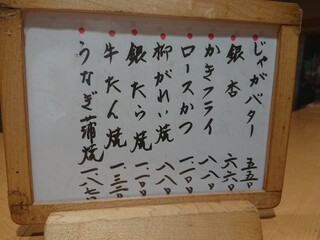 じゃがバター 五五〇
銀杏 六六〇
かきフライ 八八〇
ロースかつ 一.一〇〇
柳がれい焼 八八〇
銀たら焼 一.一〇〇
牛たん焼 一.三二〇
うなぎ蒲焼 一.八七〇